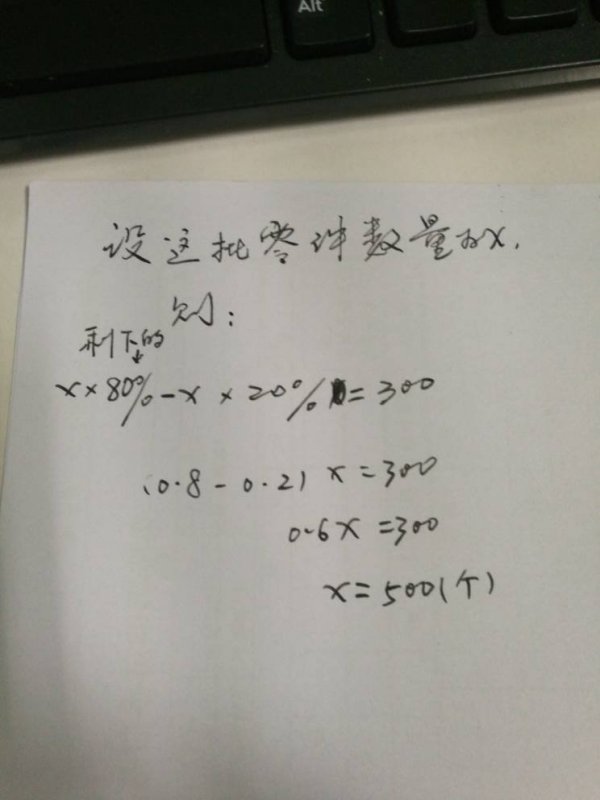 Alt
设这批零件数量为x.
则:
剩下的
x×80%-x×20%=300
(0.8-0.2)x=300
0.6x=300
x=500(个)